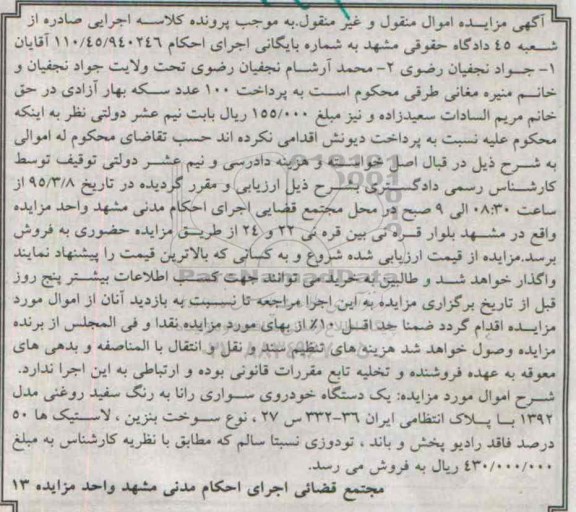 آگهی مزایـــده اموال منقول و غیر منقول.به موجب پرونده کلاســـه اجرایی صادره از
شـــعبه ٤٥ دادگاه حقوقی مشهد به شماره بایگانی اجرای احکام ١١٠/٤٥/٩٤٠٢٤٦ آقایان
١- جـــواد نجفیان رضوی ٢- محمد آرشـــام نجفیان رضوی تحت ولایت جواد نجفیان و
خانـــم منیره مغانی طرقی محکوم اســـت به پرداخت ١٠٠ عدد ســـکه بهار آزادی در حق
خانم مریم السادات سعیدزاده و نیز مبلغ ١٥٥/٠٠٠ ریال بابت نیم عشر دولتی نظر به اینکه
محکوم علیه نسبت به پرداخت دیونش اقدامی نکرده اند حسب تقاضای محکوم له اموالی
به شـــرح ذیل در قبال اصل خواســـته و هزینه دادرسی و نیم عشـــر دولتی توقیف توسط
کارشـــناس رسمی دادگســـتری بشـــرح ذیل ارزیابی و مقرر گردیده در تاریخ ٩٥/٣/٨ از
ساعت ٠٨:٣٠ الی ٩ صبح در محل مجتمع قضایی اجرای احکام مدنی مشهد واحد مزایده
واقع در مشـــهد بلوار قـــره نی بین قره نی ٢٢ و ٢٤ از طریـــق مزایده حضوری به فروش
برسد.مزایده از قیمت ارزیابی شده شروع و به کسانی که بالاترین قیمت را پیشنهاد نمایند
واگذار خواهد شـــد و طالبین به خرید می توانند جهت کســـب اطلاعات بیشـــتر پنج روز
قبل از تاریخ برگزاری مزایده به این اجرا مراجعه تا نســـبت به بازدید آنان از اموال مورد
مزایـــده اقدام گردد ضمنا حد اقـــل ١٠٪ از بهای مورد مزایده نقدا و فی المجلس از برنده
مزایده وصول خواهد شد هزینه های تنظیم سند و نقل و انتقال با المناصفه و بدهی های
معوقه به عهده فروشنده و تخلیه تابع مقررات قانونی بوده و ارتباطی به این اجرا ندارد.
شـــرح اموال مورد مزایده: یک دستگاه خودروی ســـواری رانا به رنگ سفید روغنی مدل
١٣٩٢ بـــا پـــلاک انتظامی ایران ٣٦-٣٣٢ س ٢٧ ، نوع ســـوخت بنزین ، لاســـتیک ها ٥٠
درصد فاقد رادیو پخش و باند ، تودوزی نسبتا سالم که مطابق با نظریه کارشناس به مبلغ
٤٣٠/٠٠٠/٠٠٠ ریال به فروش می رسد.
مجتمع قضائی اجرای احکام مدنی مشهد واحد مزایده ١٣